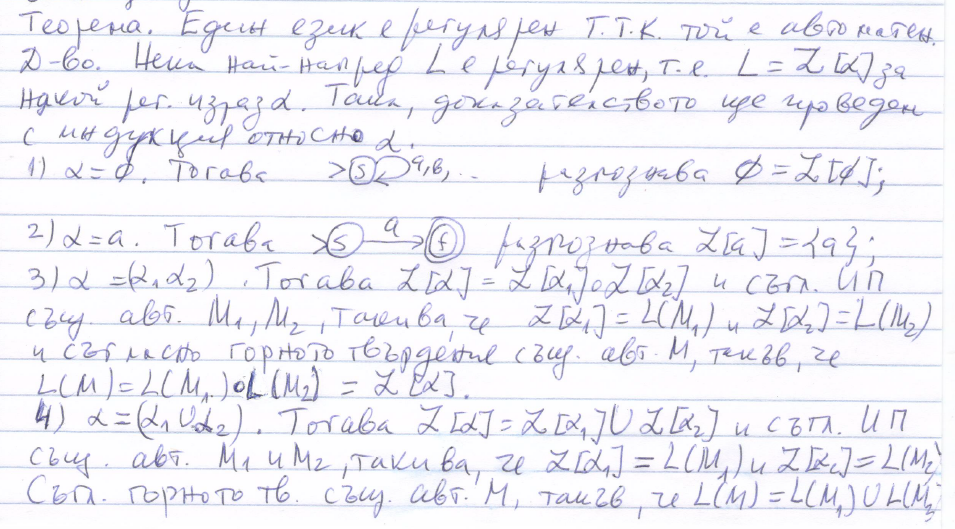 Теорема. Един език е регулярен Т.Т.К. той е автоматен.
Д-во. Нека най-напред L е регулярен, т.е. L = ℒ[α] за
някой рег. израз α. Така, доказателството ще проведем
с индукция относно α.
1) α = ∅. Тогава >(S) a,b,... разпознава ∅ = ℒ[∅];
2) α = a. Тогава >(S) a→ (f) разпознава ℒ[a] = {a};
3) α = (α₁α₂). Тогава ℒ[α] = ℒ[α₁]∘ℒ[α₂] и съгл. ИП
същ. авт. M₁, M₂, такива, че ℒ[α₁] = L(M₁) и ℒ[α₂] = L(M₂)
и съгласно горното твърдение същ. авт. M, такъв, че
L(M) = L(M₁)∘L(M₂) = ℒ[α].
4) α = (α₁∪α₂). Тогава ℒ[α] = ℒ[α₁]∪ℒ[α₂] и съгл. ИП
същ. авт. M₁ и M₂, такива, че ℒ[α₁] = L(M₁) и ℒ[α₂] = L(M₂)
Съгл. горното тв. същ. авт. M, такъв, че L(M) = L(M₁)∪L(M₂